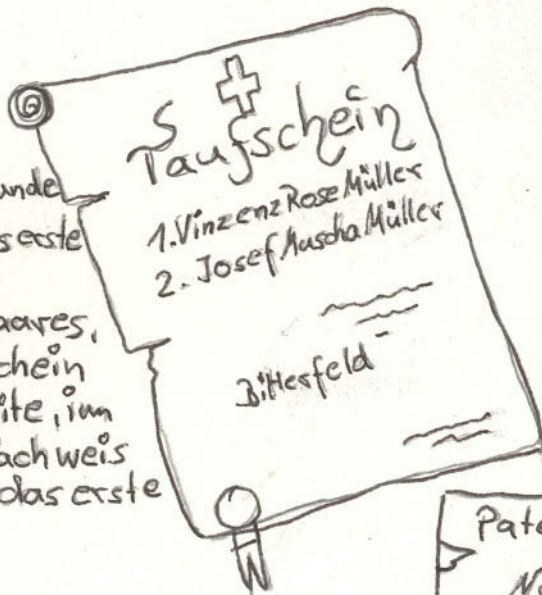 unde
s erste
aares,
chein
ite, im
achweis
das erste
Taufschein
1. Vinzenz Rose Müller
2. Josef Muscha Müller
Bitterfeld
Pate